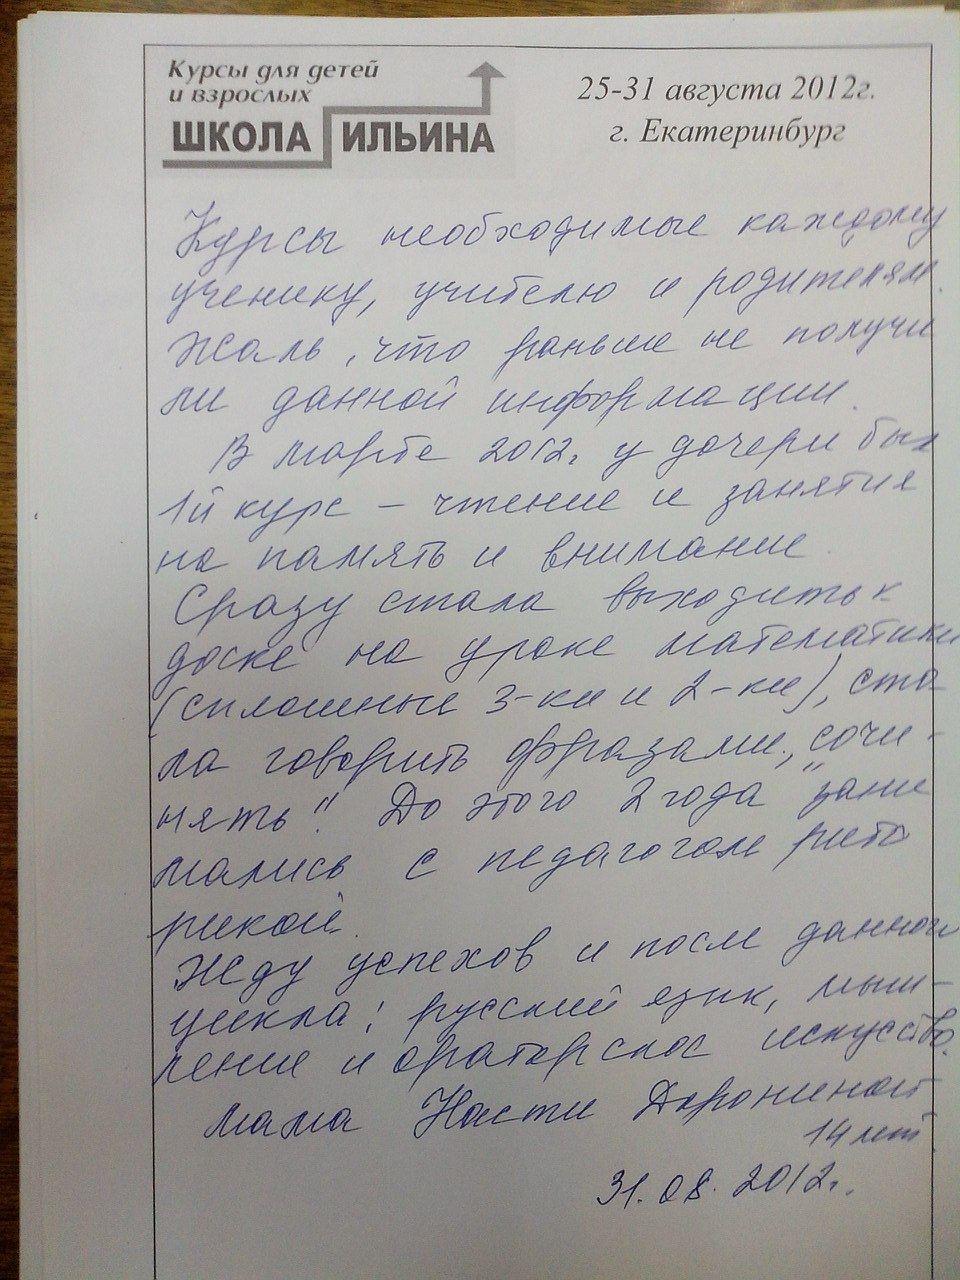 Курсы для детей
и взрослых
ШКОЛА ИЛЬИНА
25-31 августа 2012г.
г. Екатеринбург
Курсы необходимые каждому
ученику, учителю и родителям.
Жаль, что раньше не получи
ли данной информации.
В марте 2012г. у дочери был
1й курс – чтение и занятие
на память и внимание.
Сразу стала выходить к
доске на уроке математики
(сплошные 3-ки и 2-ки), ста-
ла говорить фразами, „сочи-
нять". До этого 2 года "зани
мались с педагогом рито
рикой.
Жду успехов и после данного
цикла: русский язык, мыш-
ление и ораторское искусство.
Мама Насти Дорониной
14 лет
31.08.2012г.